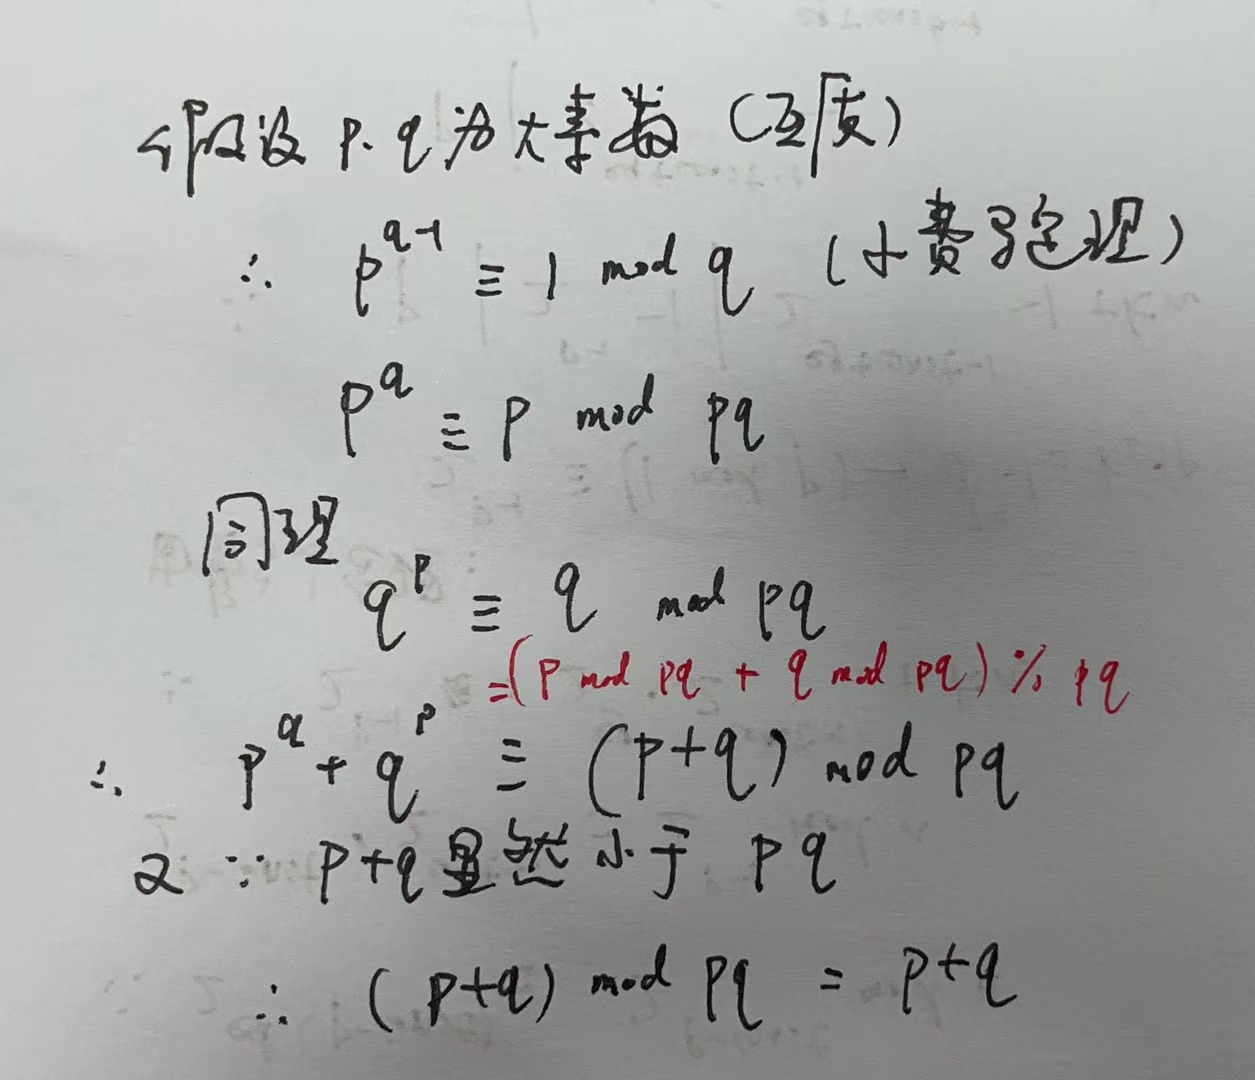 假设 p.q为大素数(互质)
∴ p^{q-1} ≡ 1 mod q (小费马定理)
p^q ≡ p mod pq
同理
q^p ≡ q mod pq
=(p mod pq + q mod pq) % pq
∴ p^q + q^p ≡ (p+q) mod pq
又 ∵ p+q显然小于 pq
∴ (p+q) mod pq = p+q